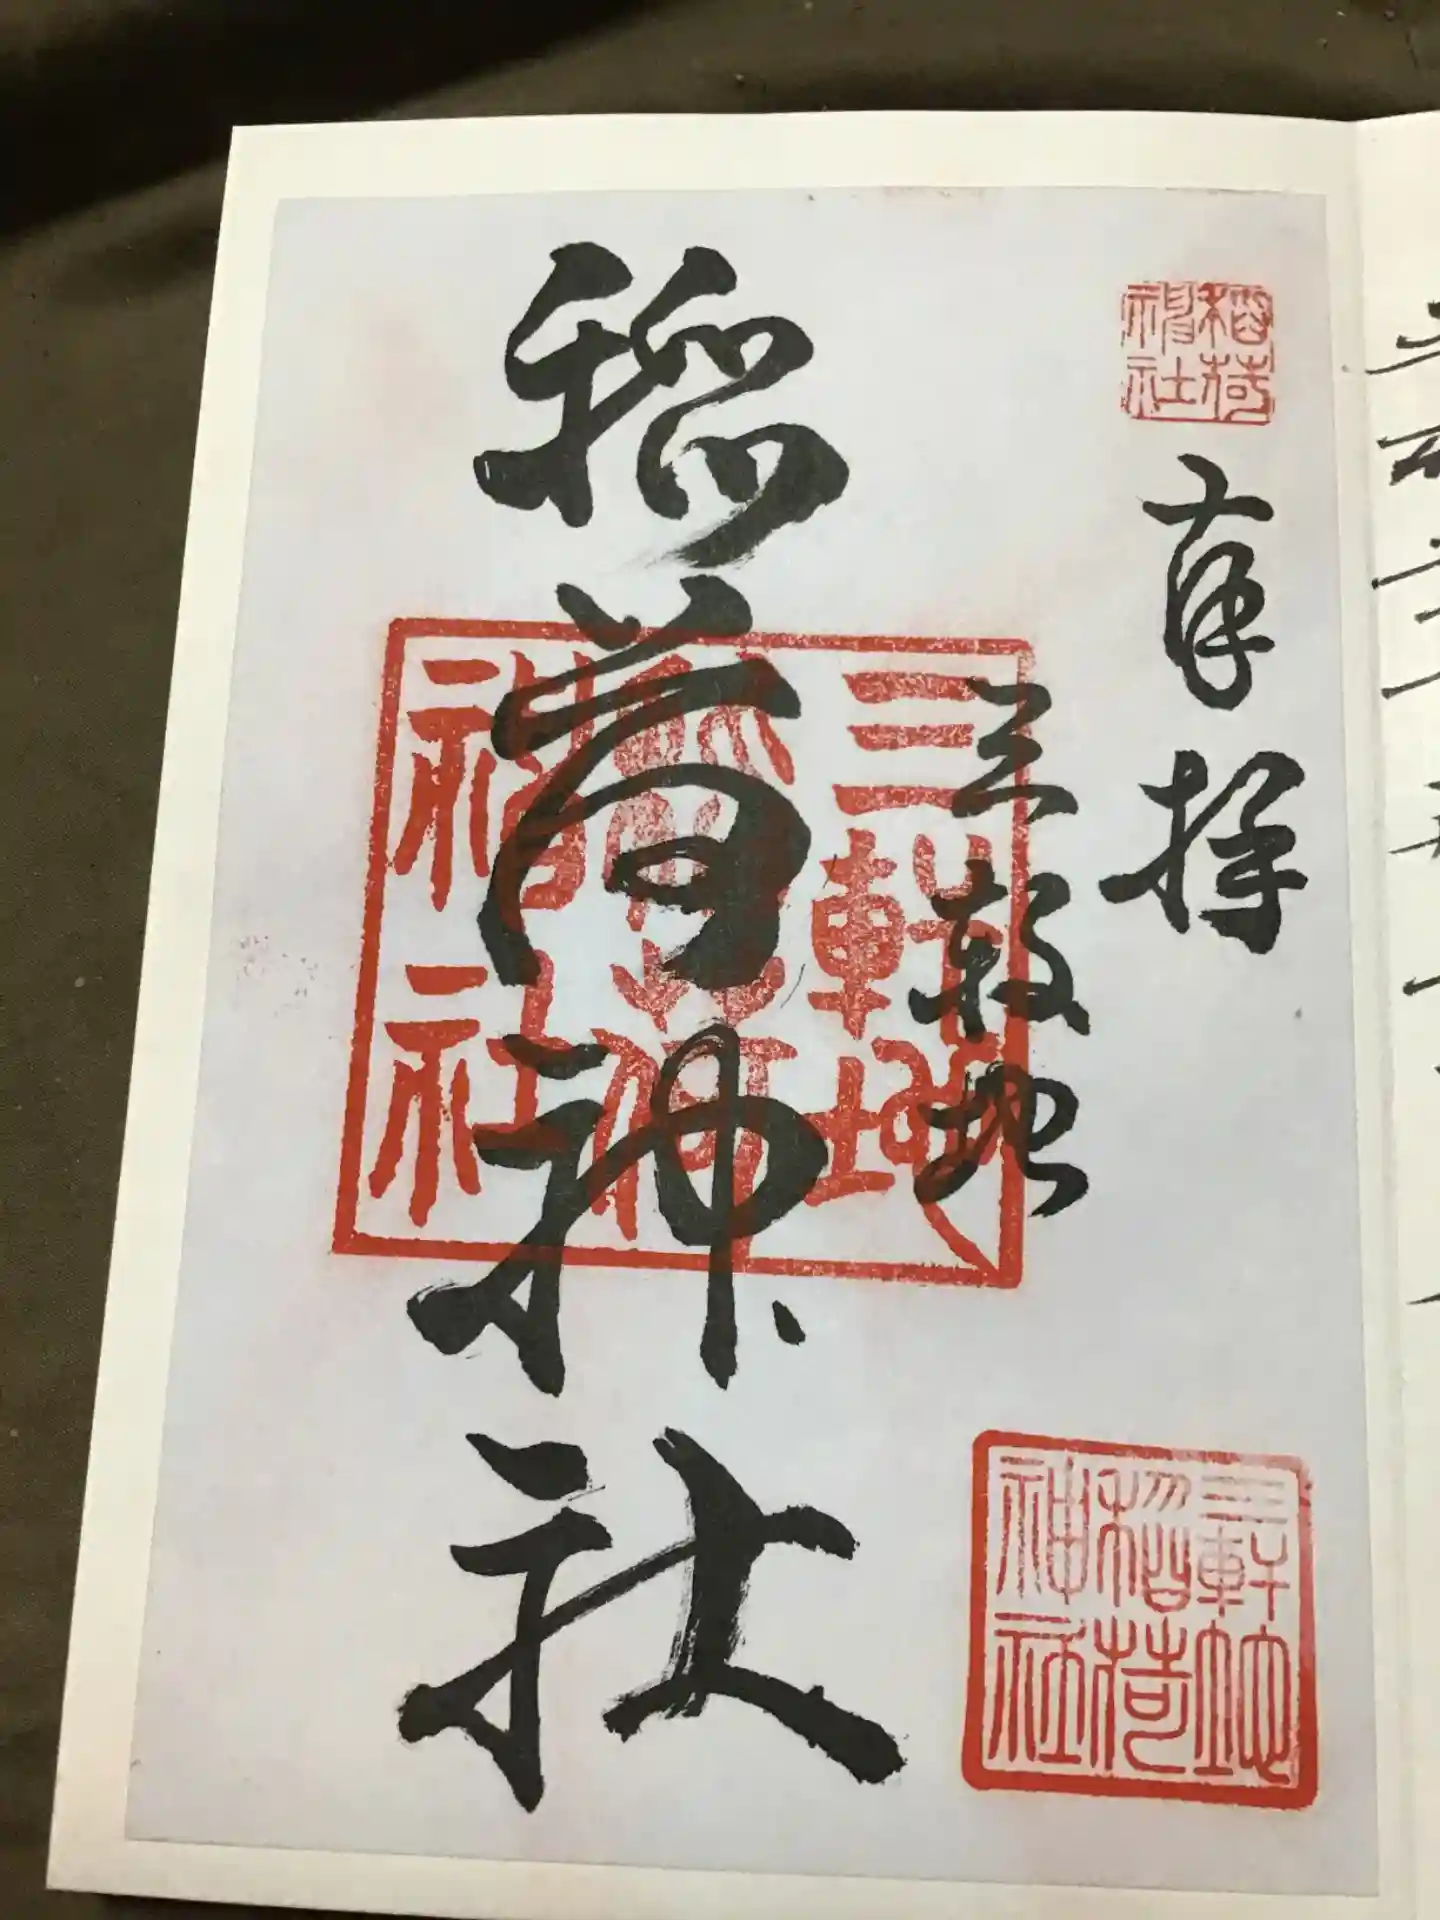 稲荷神社
奉拝
三軒地
稲荷神社
三軒地
稲荷
神社
三軒地
稲荷
神社